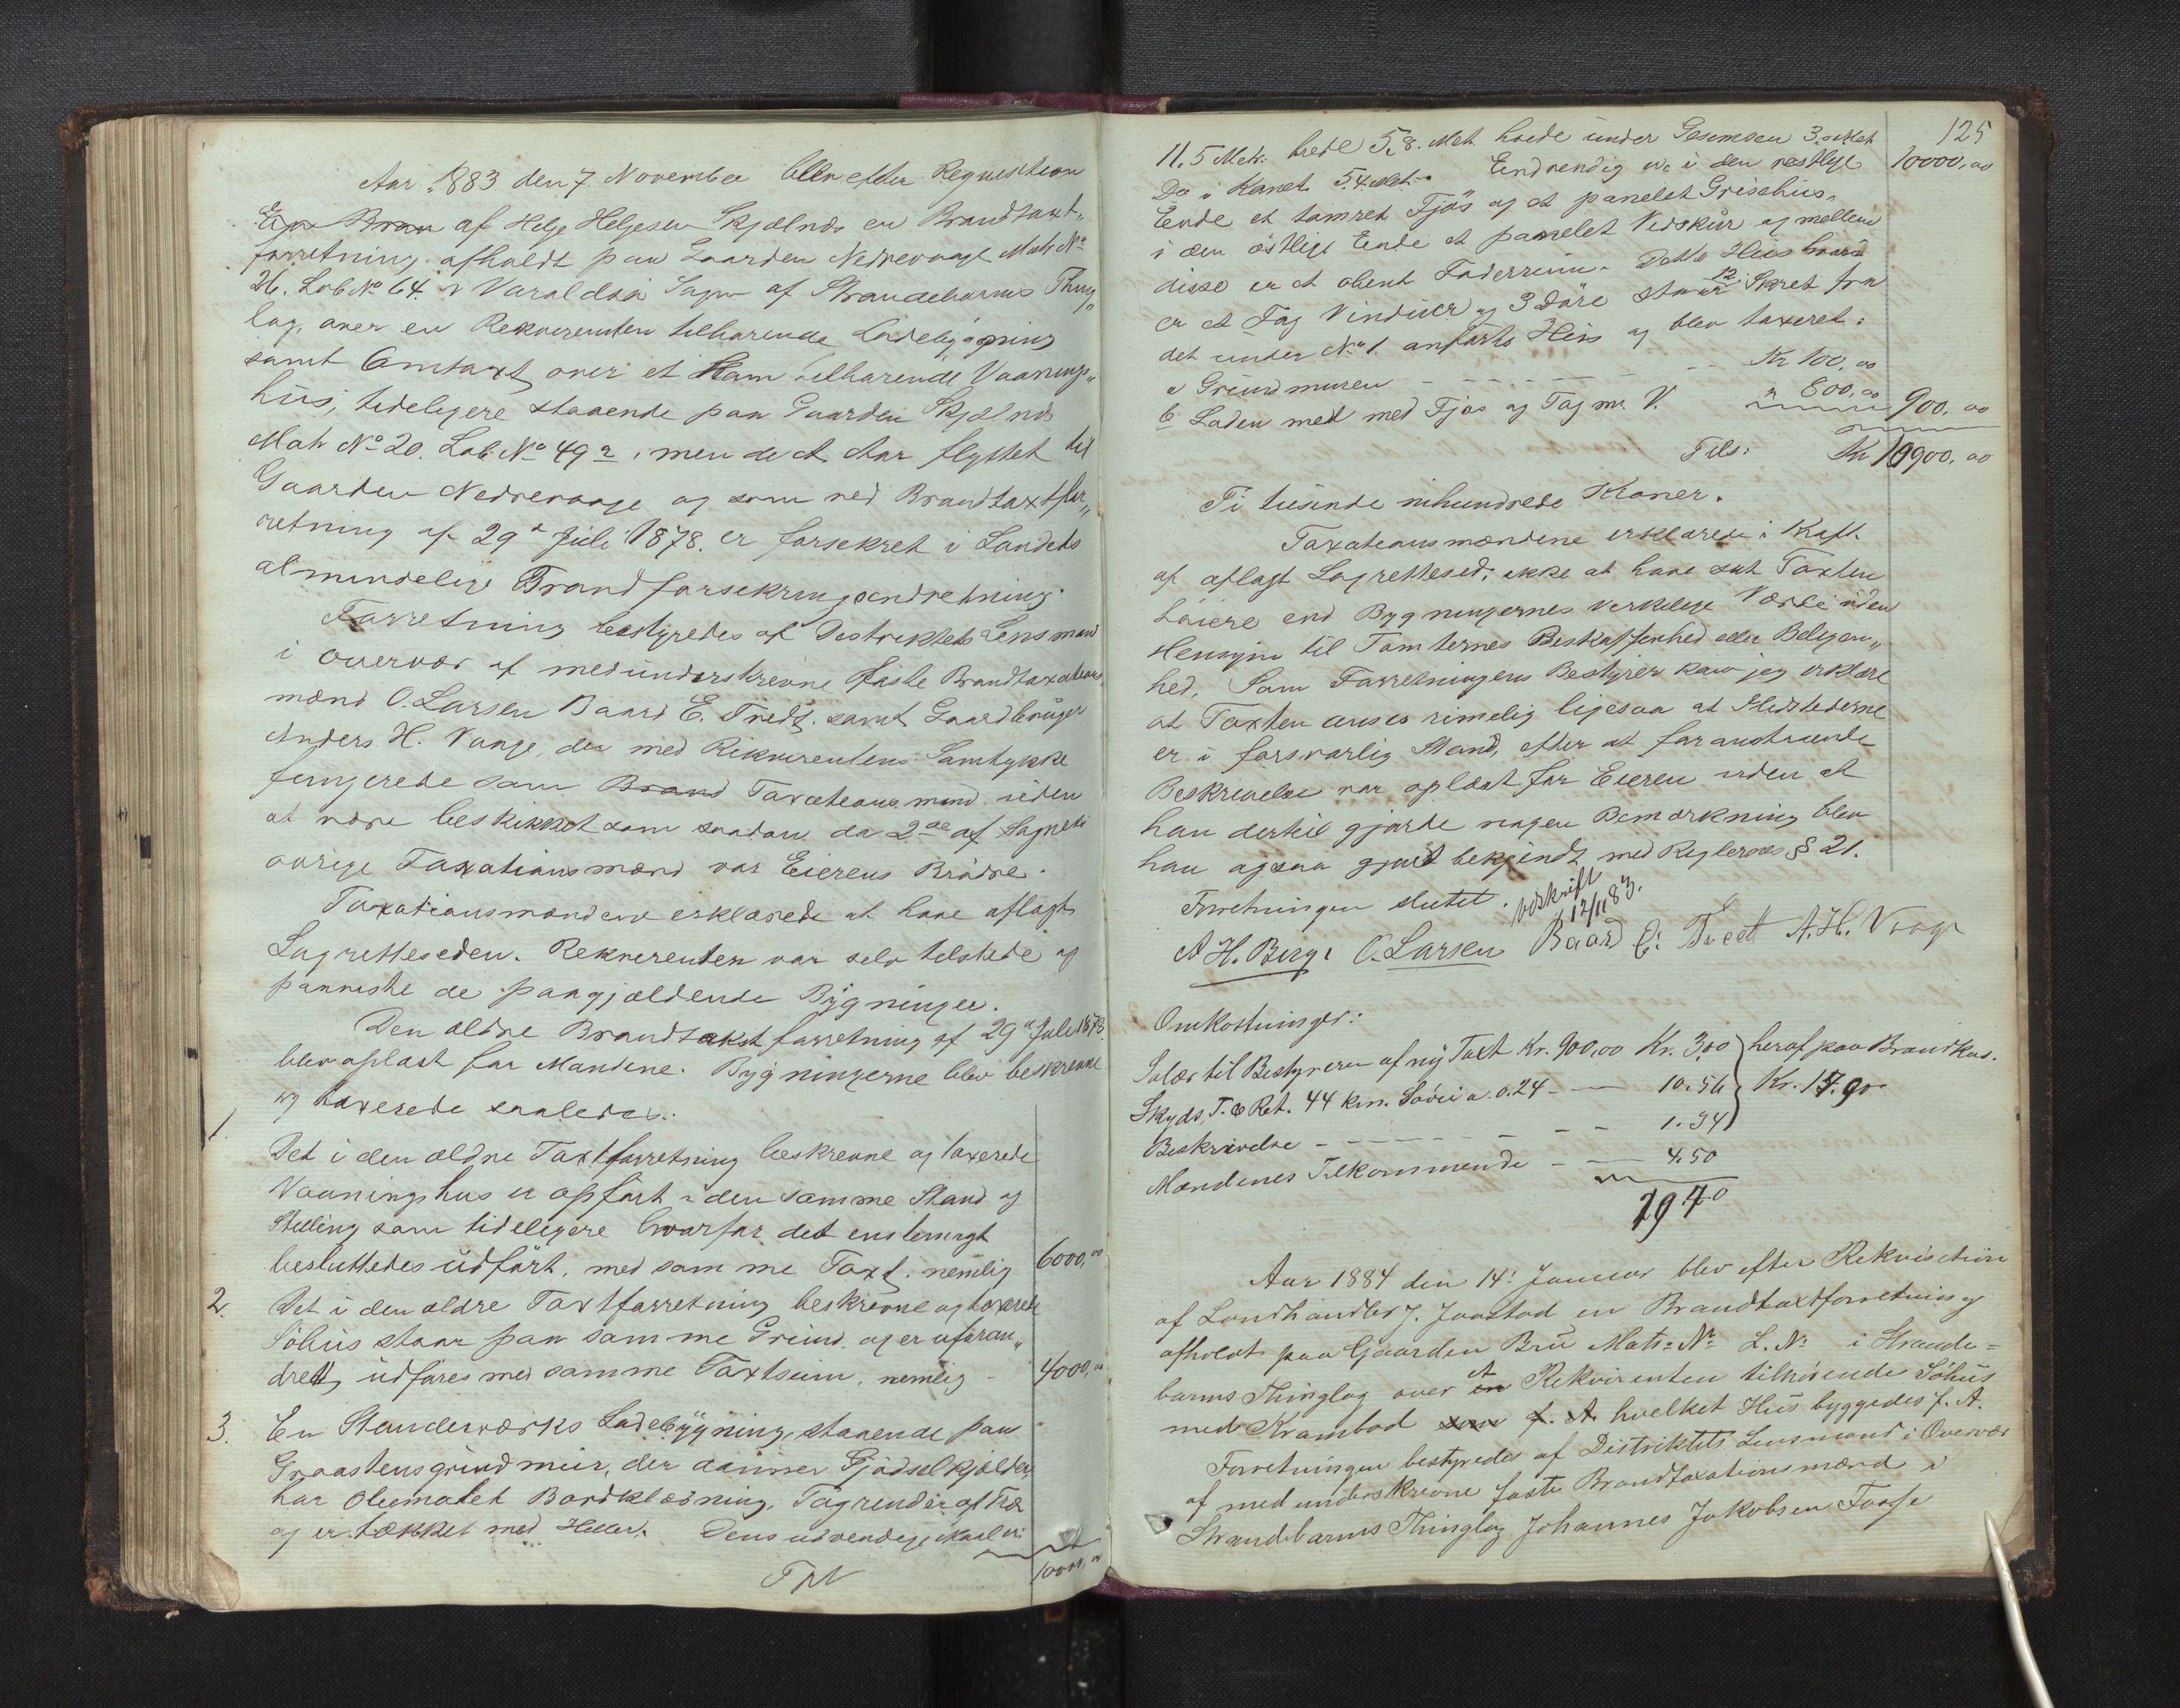 Aar 1883 den 7 November blev efter Requisition
En Bran af Helge Helgesen Skjælnæs en Brandtaxt„
forretning afholdt paa Gaarden Nedrevaage Mat. No
26. Løb No 64. i Varaldsø Sogn af Strandebarms Thing„
lag, over en Rekvirenten tilhørende Ladebygning
samt Omtaxt over et Ham tilhørende Vaanings„
hus, tideligere staaende paa Gaarden Skjælnæs
Mat No 20. Løb. No 49a, men de et har flyttet til
Gaarden Nedrevaage og som ved Brandtaxtfor„
retning af 29de Juli 1878. er forsekret i Landets
almindelige Brandforsekringsindretning.
Forretning bestyredes af Destriktets Lensmand
i overvær af medunderskrevne faste Brandtaxations„
mænd O. Larsen Baard E. Tredt. samt Gaardbruger
Anders H. Vaage, der med Rikvirentens Samtykke
fungerede som Brand Taxationsmand uden
at være beskikket som saadan da 2de af Sognets
øvrige Taxationsmænd var Eierens Brødre.
Taxationsmændene erklærede at have aflagt
Lagretteseden. Rekverenten var selv telstede og
paaviste de paagjældende Bygninger.
Den ældre Brandtakst forretning af 29de Juli 1878
blev oplæst for Mændene. Bygningerne blev beskrevne
og taxerede saaledes:
1. Det i den ældre Taxtforretning beskrevne og taxerede
Vaaningshus er opført i den samme Stand og
Stelling som tideligere hvorfor det enstemigt
besluttedes udført, med samme Taxt. nemlig 6000,00
2. Det i den ældre Taxtforretning beskrevne og taxerede
Søhus staar paa samme Grund, og er uforan„
dret, udføres med samme Taxtsum, nemlig - 4000,00
3. En Standerværks Ladebygning, staaende paa
Graastensgrundmur, der danner Gjødselkjelder
har Oliemalet Bordklædning, Tagrender af Træ
og er tækket med Heller. Dens udvendige Maal er:
10000,00
125
11.5 Met: brede 5.8. Met høide under Gesemsen 3. Met 10000,00
Do i Kanet 5.4 Met. Endvendig er i den vestlige
Ende et tømret Fjøs og et panelet Grisehus.
i den østlige Ende et panelet Vedskur og mellem
disse er et obent Foderrum. Dette Hus hvori
er et Fag Vinduer og 3 Døre staar 12 Skret fra
det under No 1. anførte Hus og blev taxeret:
a Grundmuren - - - Kr 100,00
b Laden med med Fjøs og Tag m. V. " 800,00 900,00
Tils: Kr 10900,00
Ti tusinde nihundrede Kroner.
Taxationsmændene erklærede i Kraft
af aflagt Lagrettesed, ikke at have sat Taxten
høiere end Bygningernes verkelige Værdi uden
Hensyn til Tomternes Beskaffenhed eller Beligen„
hed. Som Forretningens Bestyrer kan jeg erklære
at Taxten anses rimelig ligesaa at Ildstederne
er i forsvarlig Stand, efter at foranstaaende
Beskrivelse var oplæst for Eieren uden at
han dertil gjorde nogen Bemærkning blev
han ogsaa gjort bekjendt med Reglernes § 21.
Forretningen sluttet. Udskrift
12/11 83.
A H. Berge O. Larsen Baard E: Treet A. H. Vaage
Omkostninger:
Salær til Bestyreren af ny Taxt Kr. 900,00 Kr. 3,00 } heraf paa Brandkas.
Skyds, T. & Ret. 44 km. Søvei a. 0.24 - 10.56 } Kr. 1
Beskrivelse - - - 1.34
Mændenes Tilkommende - - 4.50
19 40
Aar 1884 den 14. Januar blev efter Rekvisition
af Landhandler J. Jaastad en Brandtaxtforretning
afholdt paa Gaarden Bru Mat: No L. No i Strande=
barms Thinglag over en et Rekvirenten tilhørende Søhus
med Krambod som f. A. hvelket Hus byggedes f. A.
Forretningen bestyredes af Distriktets Lensmand i Overvær
af medunderskrevne faste Brandtaxationsmænd i
Strandebarms Thinglag Johannes Jakobsen